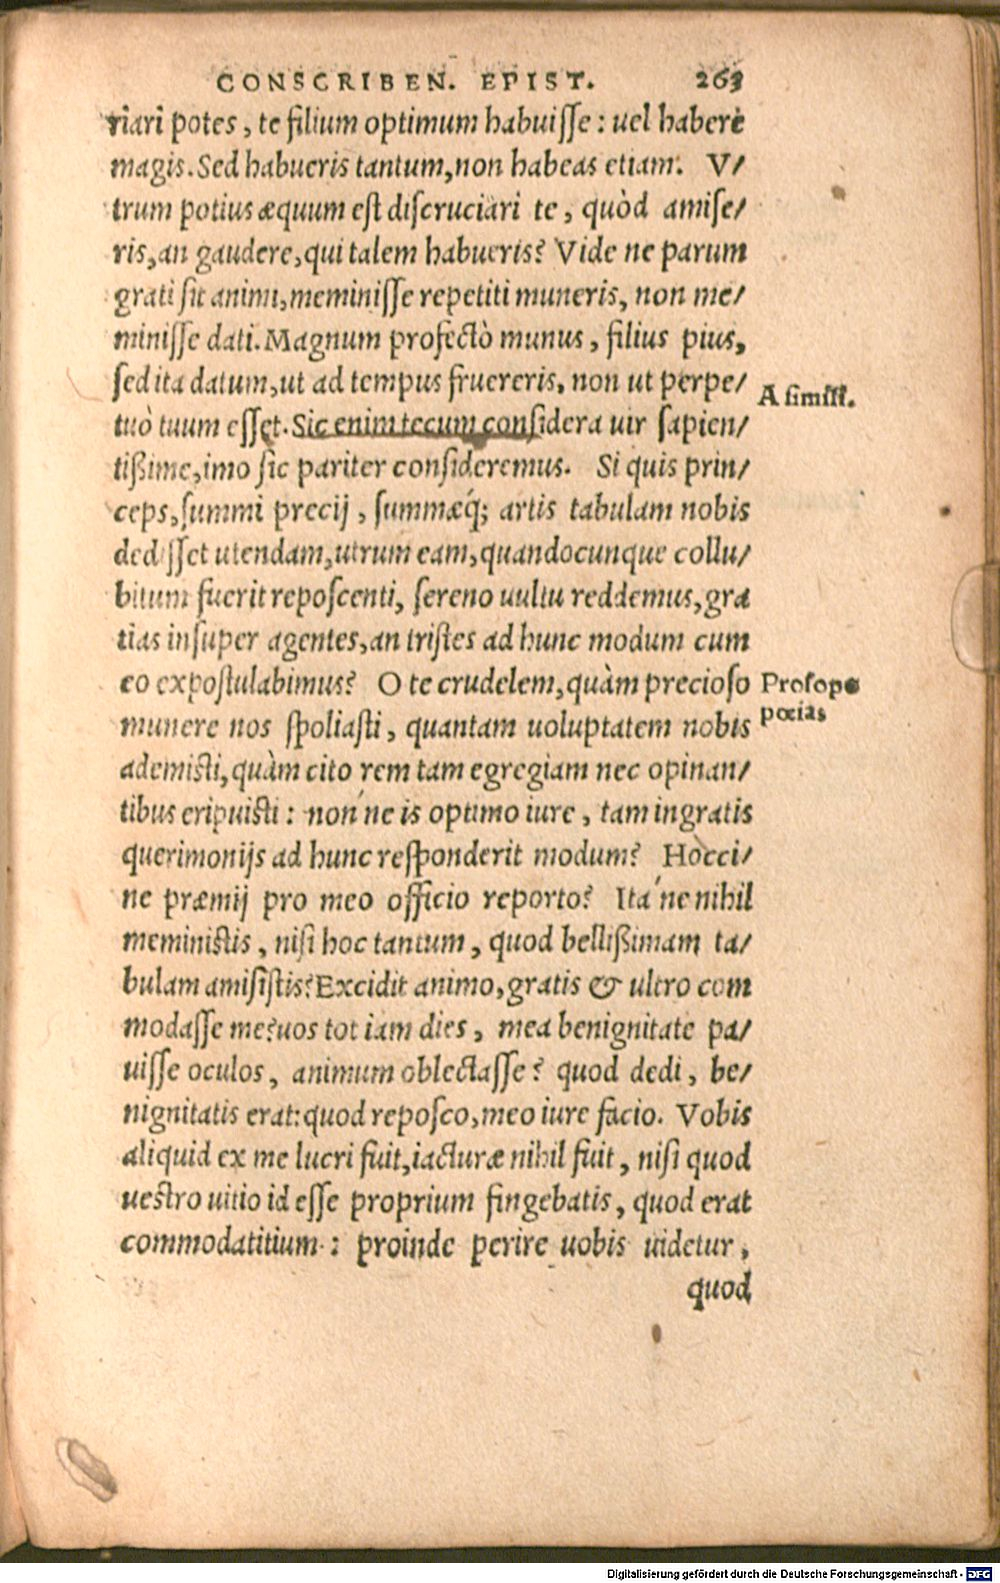 CONSCRIBEN. EPIST. 263
riari potes, te filium optimum habuisse: uel habere
magis. Sed habueris tantum, non habeas etiam. V/
trum potius æquum est discruciari te, quòd amise/
ris, an gaudere, qui talem habueris? Vide ne parum
grati sit animi, meminisse repetiti muneris, non me/
minisse dati. Magnum profectò munus, filius pius,
sed ita datum, ut ad tempus fruereris, non ut perpe/
tuò tuum esset. Sic enim tecum considera uir sapien/
A simili.
tißime, imo sic pariter consideremus. Si quis prin/
ceps, summi precij, summæq́; artis tabulam nobis
dedisset utendam, utrum eam, quandocunque collu/
bitum fuerit reposcenti, sereno uultu reddemus, gra
tias insuper agentes, an tristes ad hunc modum cum
eo expostulabimus? O te crudelem, quàm precioso
Prosopo
pœias
munere nos spoliasti, quantam uoluptatem nobis
ademisti, quàm cito rem tam egregiam nec opinan/
tibus eripuisti: non'ne is optimo iure, tam ingratis
querimonijs ad hunc responderit modum? Hocci/
ne præmij pro meo officio reporto? Ita'ne nihil
meministis, nisi hoc tantum, quod bellißimam ta/
bulam amisistis? Excidit animo, gratis & ultro com
modasse me? uos tot iam dies, mea benignitate pa/
uisse oculos, animum oblectasse? quod dedi, be/
nignitatis erat: quod reposco, meo iure facio. Vobis
aliquid ex me lucri fuit, iacturæ nihil fuit, nisi quod
uestro uitio id esse proprium fingebatis, quod erat
commodatitium: proinde perire uobis uidetur,
quod
Digitalisierung gefördert durch die Deutsche Forschungsgemeinschaft - DFG